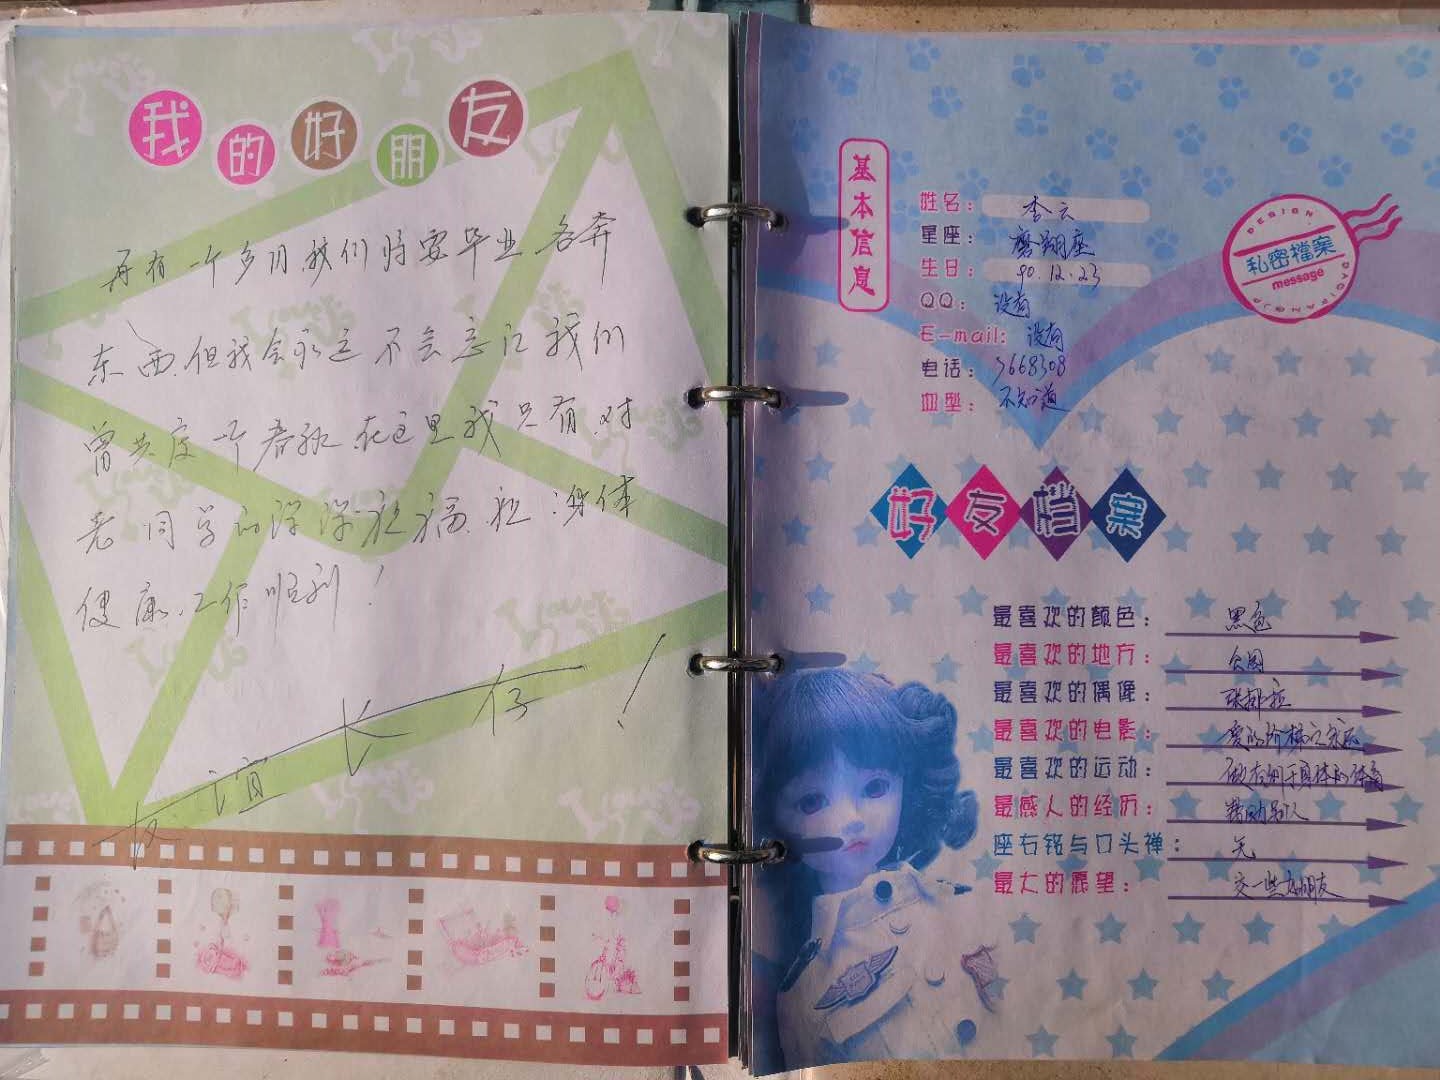 我的好朋友
再有一个多月,我们将要毕业各奔
东、西,但我会永远不会忘记我们
曾共度一个春秋,在这里我只有对
老同学的深深祝福,祝:身体
健康、工作顺利!
友谊长存!
基本信息
姓名: 李云
星座: 磨羯座
生日: 90.12.23
QQ: 没有
E-mail: 没有
电话: 3668308
血型: 不知道
DESIGN.
私密檔案
message
好友档案
最喜欢的颜色: 黑色
最喜欢的地方: 公园
最喜欢的偶像:
最喜欢的电影:
最喜欢的运动: 做有利于身体的体育
最感人的经历: 帮助别人
座右铭与口头禅: 无
最大的愿望: 交一些好朋友